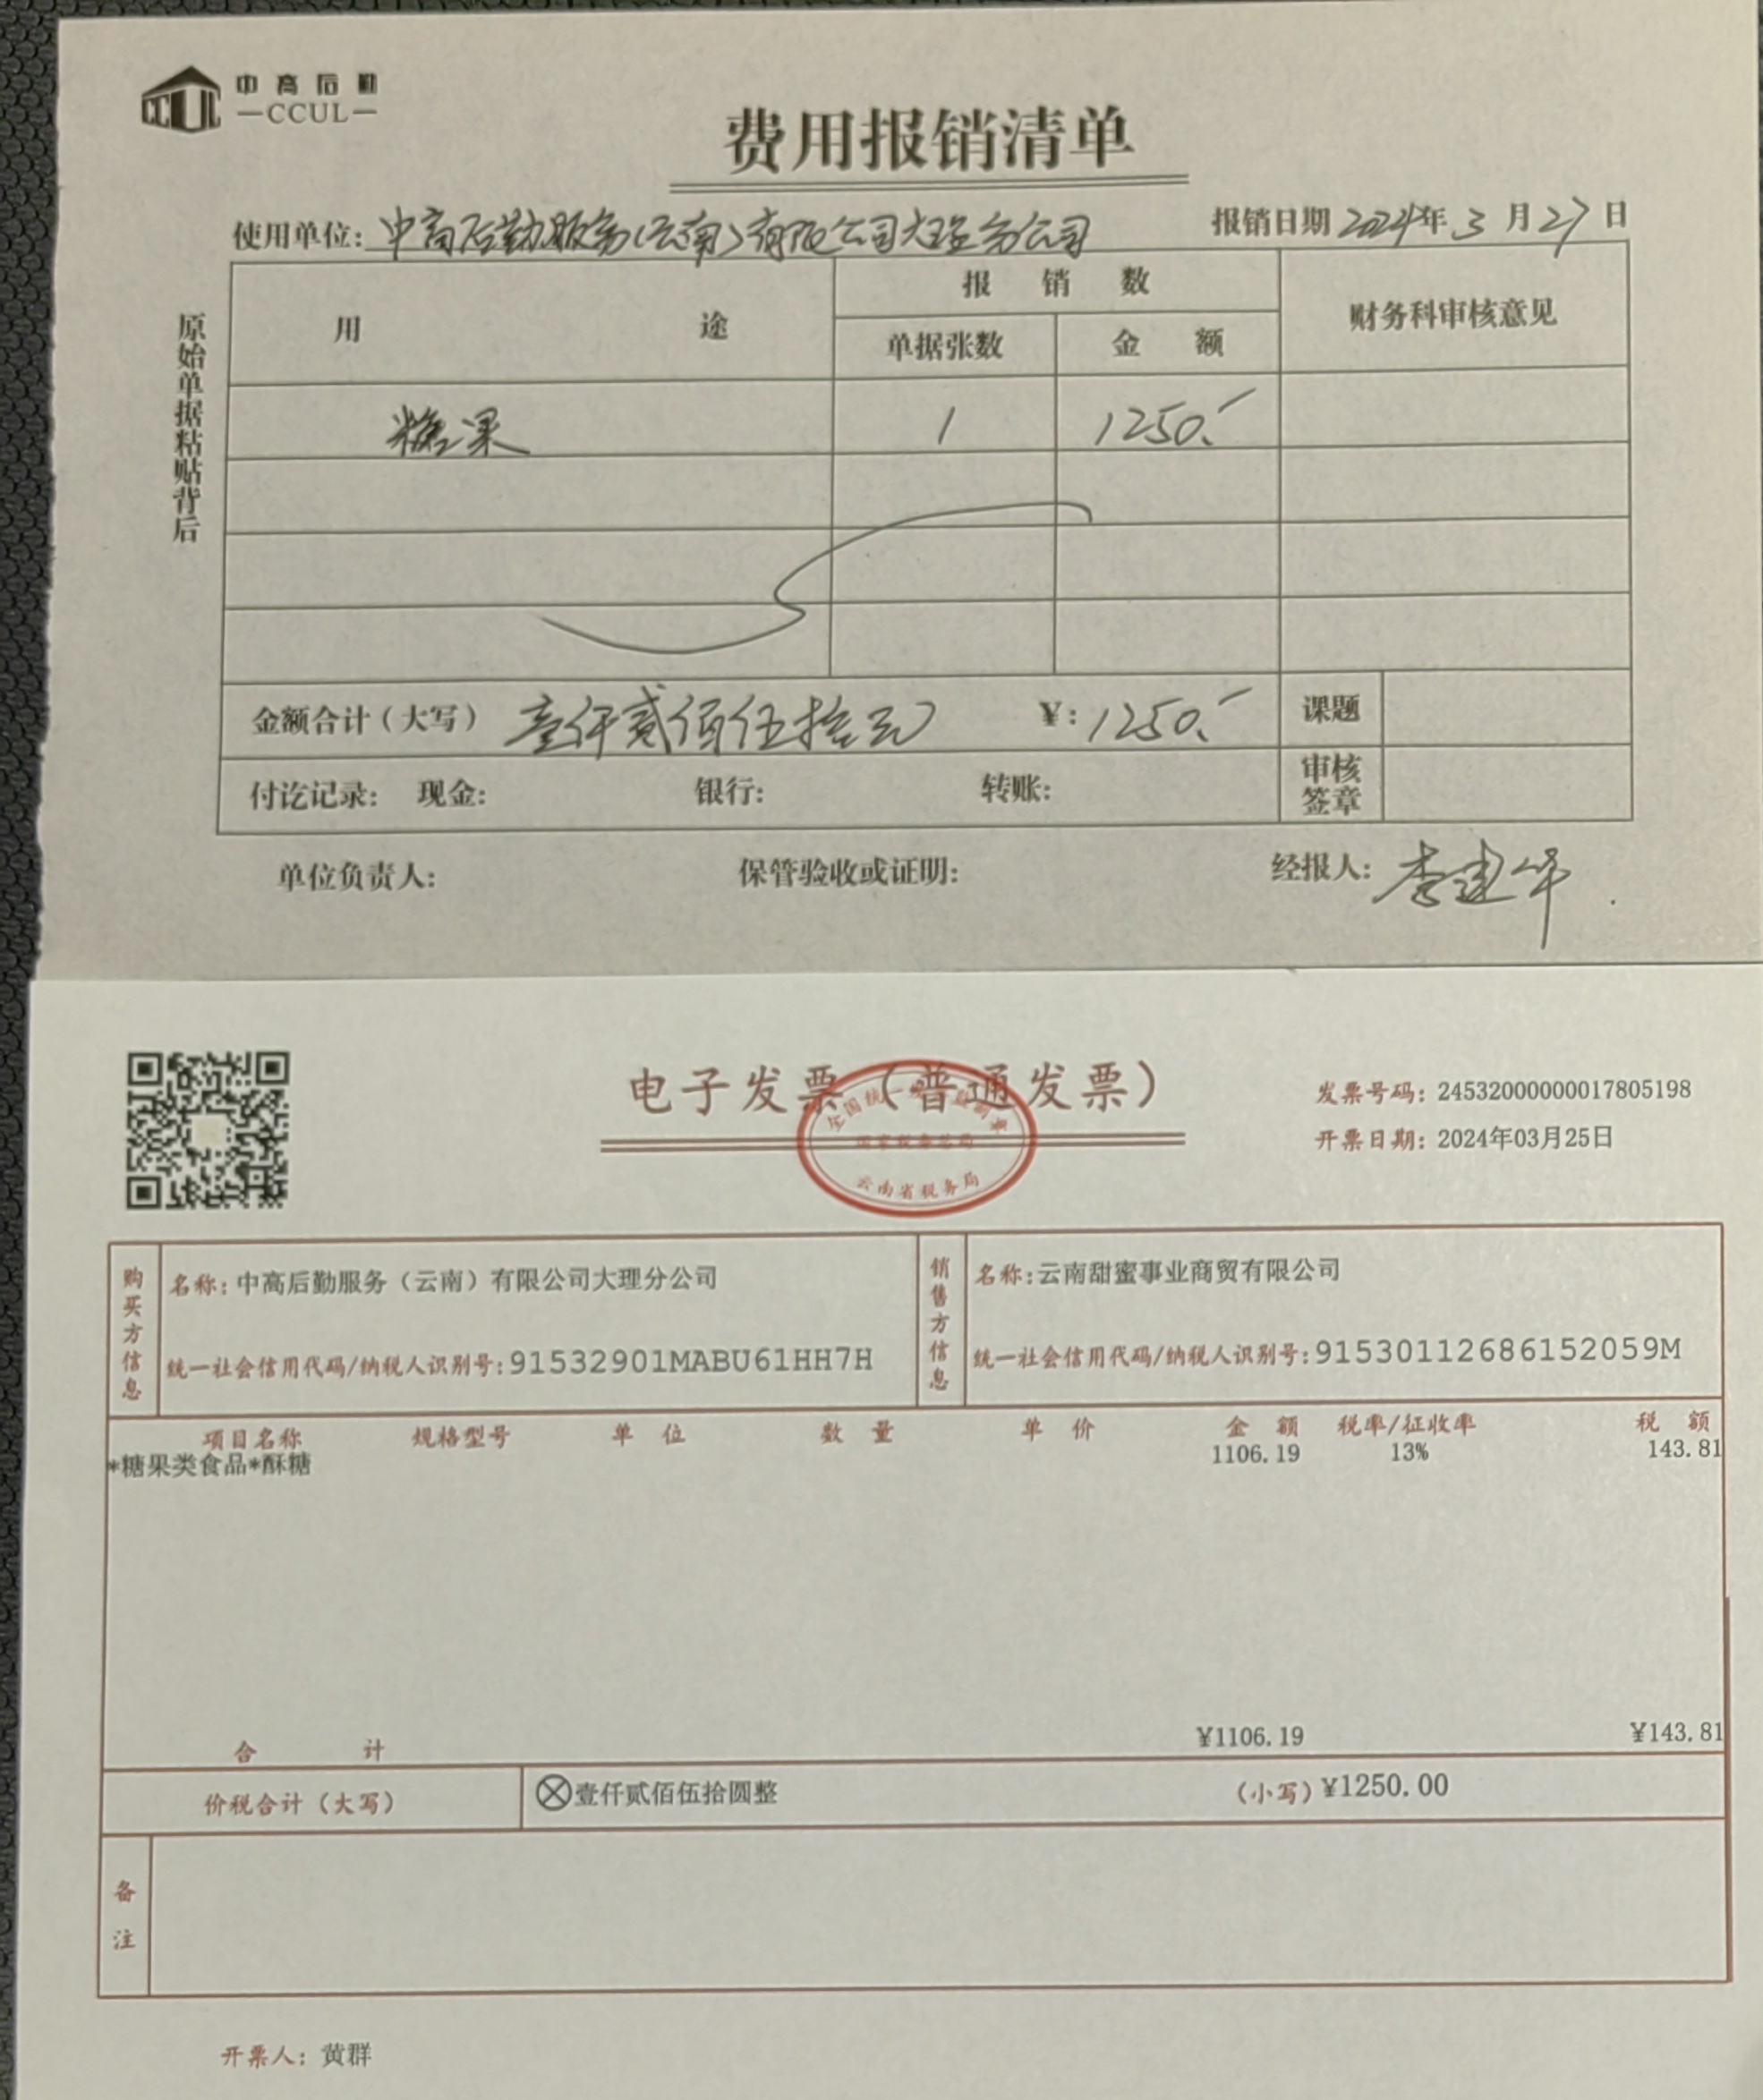 中高后勤
CCUL
—CCUL—
费用报销清单
使用单位: 中高后勤服务(云南)有限公司大理分公司 报销日期 2024年 3 月 27 日
原始单据粘贴背后
用 途 报 销 数 财务科审核意见
单据张数 金 额
糖果 1 1250.
金额合计(大写) 壹仟贰佰伍拾元 ¥: 1250. 课题
付讫记录: 现金: 银行: 转账: 审核签章
单位负责人: 保管验收或证明: 经报人: 李建华
电子发票(普通发票)
全国统一发票监制章
国家税务总局
云南省税务局
发票号码: 24532000000017805198
开票日期: 2024年03月25日
购买方信息 名称: 中高后勤服务(云南)有限公司大理分公司 销售方信息 名称:云南甜蜜事业商贸有限公司
统一社会信用代码/纳税人识别号:91532901MABU61HH7H 统一社会信用代码/纳税人识别号:91530112686152059M
项目名称 规格型号 单 位 数 量 单 价 金 额 税率/征收率 税 额
*糖果类食品*酥糖 1106.19 13% 143.81
合 计 ¥1106.19 ¥143.81
价税合计(大写) ⊗壹仟贰佰伍拾圆整 (小写)¥1250.00
备注
开票人: 黄群